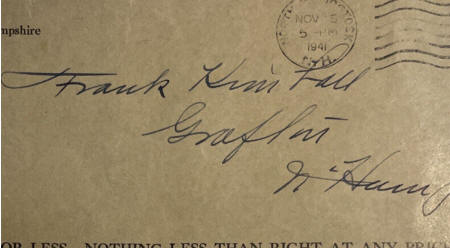 mpshire
NOV 5
5 PM
1941
N.H.
Frank Kimball
Grafton
N. Hamp
OR LESS NOTHING LESS THAN RIGHT AT ANY PRICE